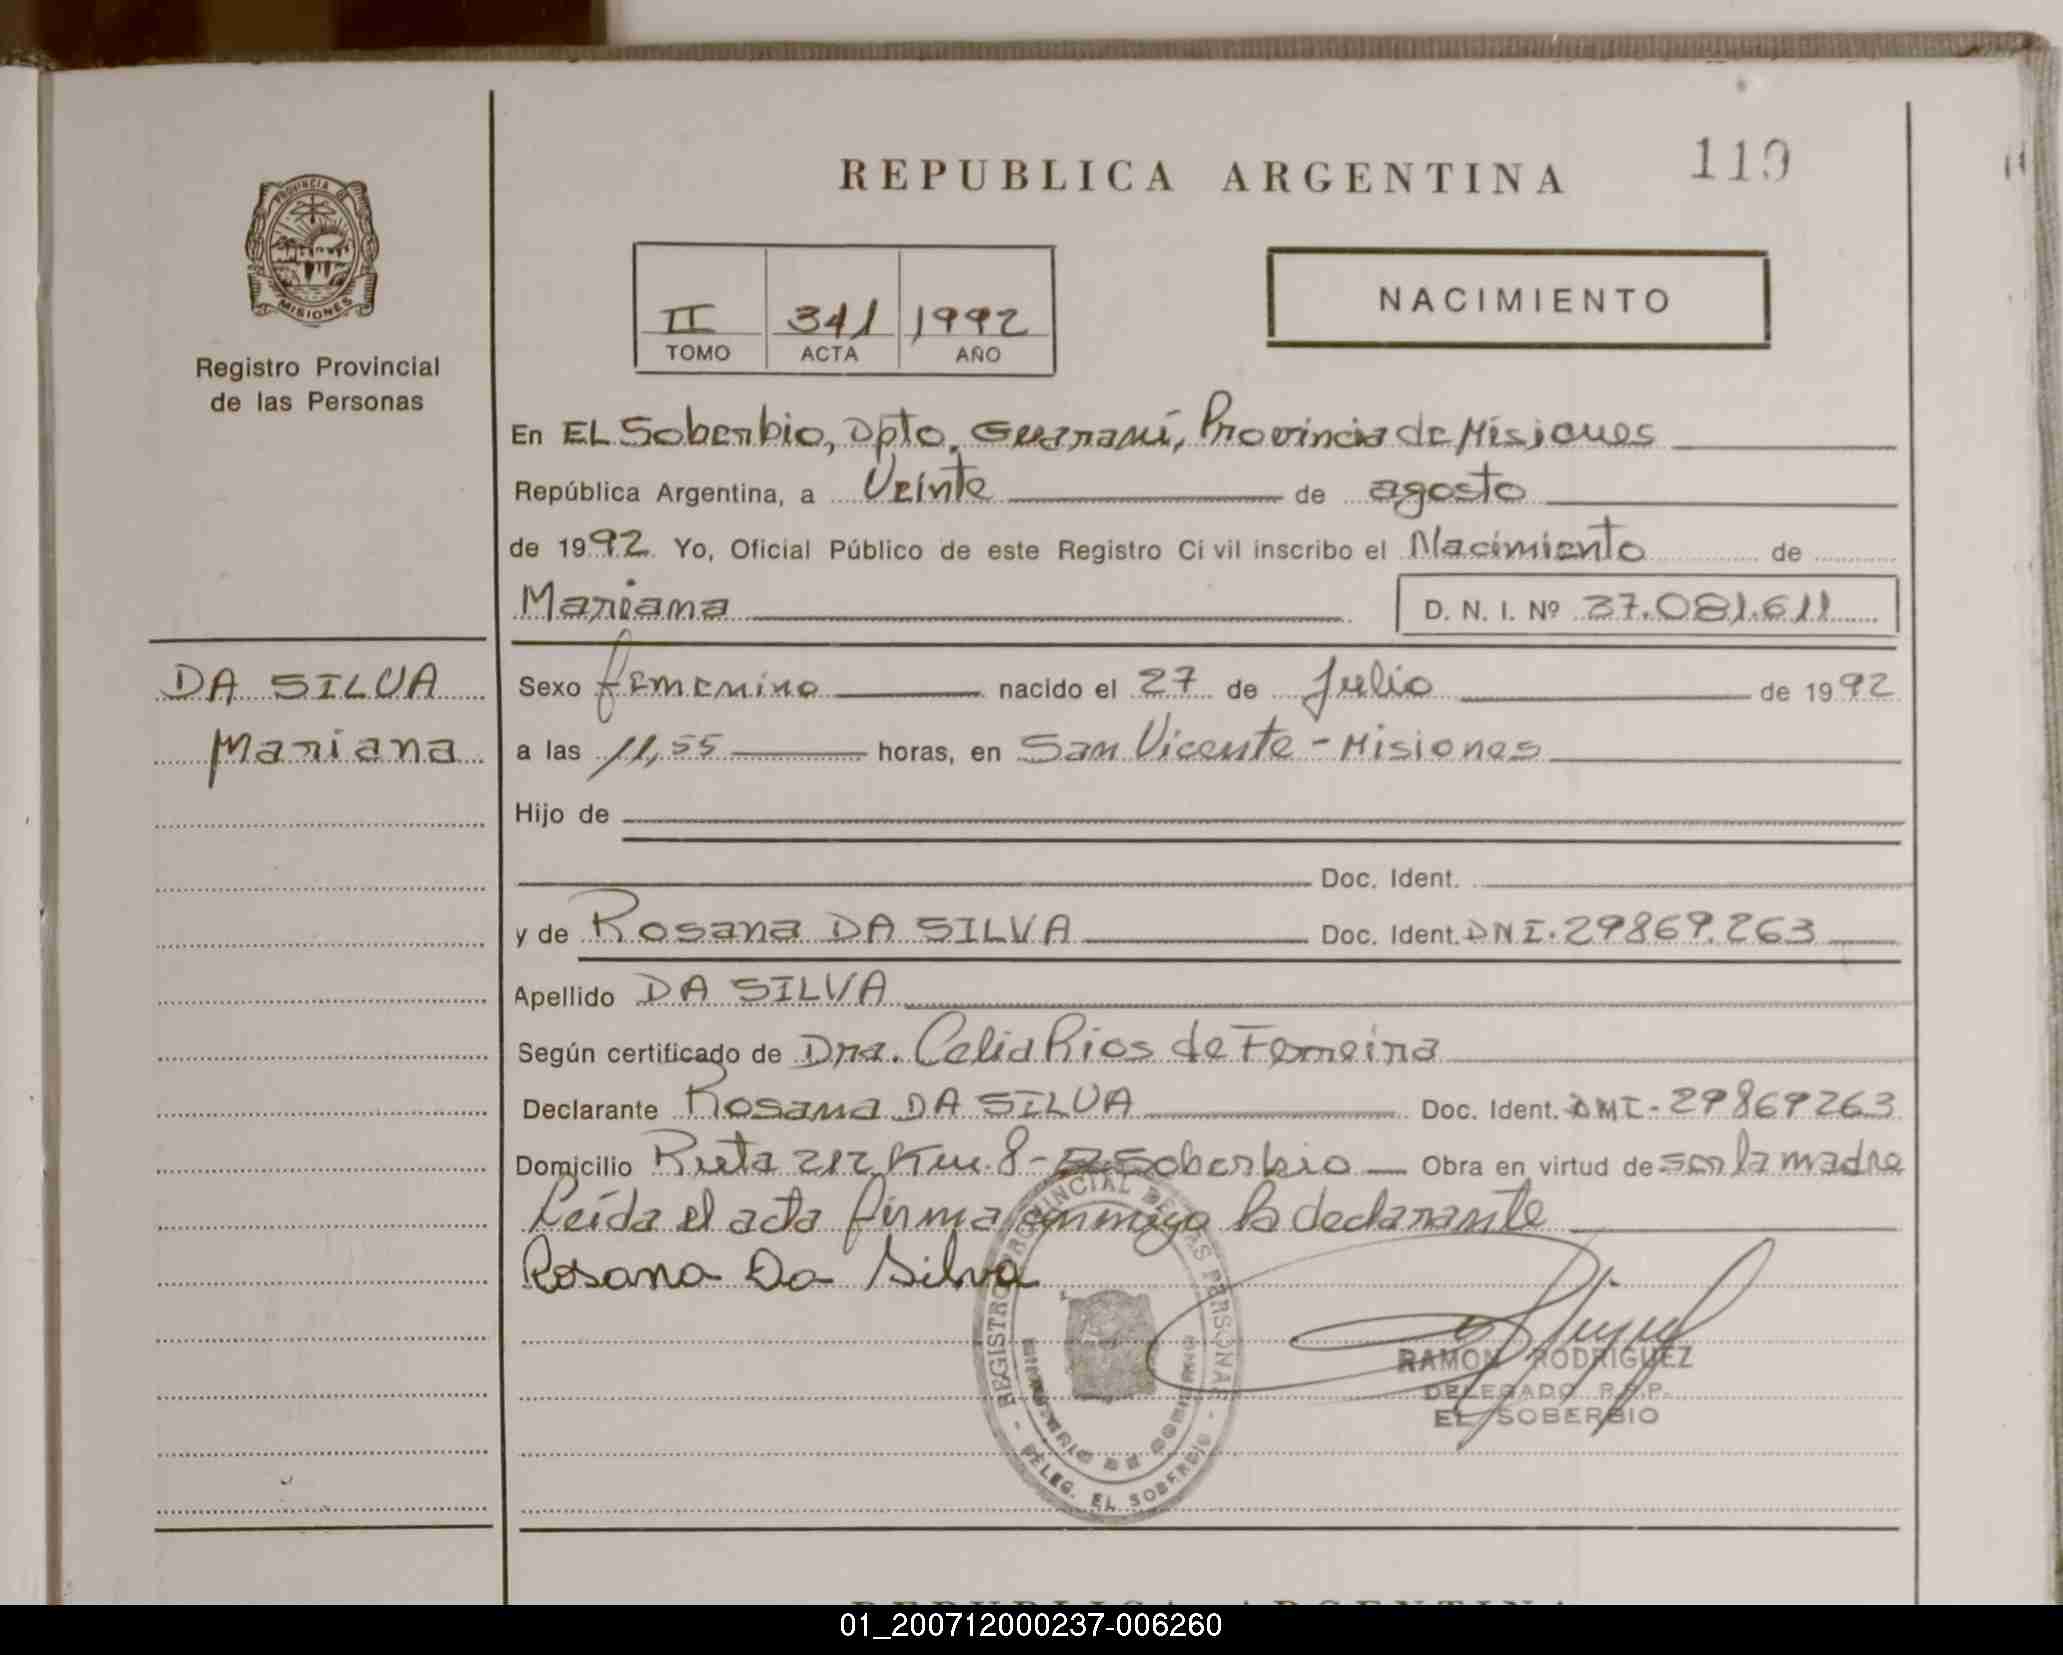 REPUBLICA ARGENTINA
119
PROVINCIA DE MISIONES
Registro Provincial
de las Personas
II 341 1992
TOMO ACTA AÑO
NACIMIENTO
En EL Soberbio, Dpto. Guaraní, Provincia de Misiones
República Argentina, a Veinte de agosto
de 1992 Yo, Oficial Público de este Registro Civil inscribo el Nacimiento de
Mariana D. N. I. Nº 37.081.611
DA SILVA
Mariana
Sexo femenino nacido el 27 de Julio de 1992
a las 11,55 horas, en San Vicente - Misiones
Hijo de
Doc. Ident.
y de Rosana DA SILVA Doc. Ident. DNI. 29869.263
Apellido DA SILVA
Según certificado de Dra. Celia Rios de Ferreira
Declarante Rosana DA SILVA Doc. Ident. DNI - 29869263
Domicilio Ruta 212 Km. 8 - Soberbio Obra en virtud de ser la madre
Leída el acta firma conmigo la declarante
Rosana Da Silva
REGISTRO PROVINCIAL DE LAS PERSONAS
MINISTERIO DE GOBIERNO
DELEG. EL SOBERBIO
RAMON RODRIGUEZ
DELEGADO R.P.P.
EL SOBERBIO
REPUBLICA ARGENTINA
01_200712000237-006260